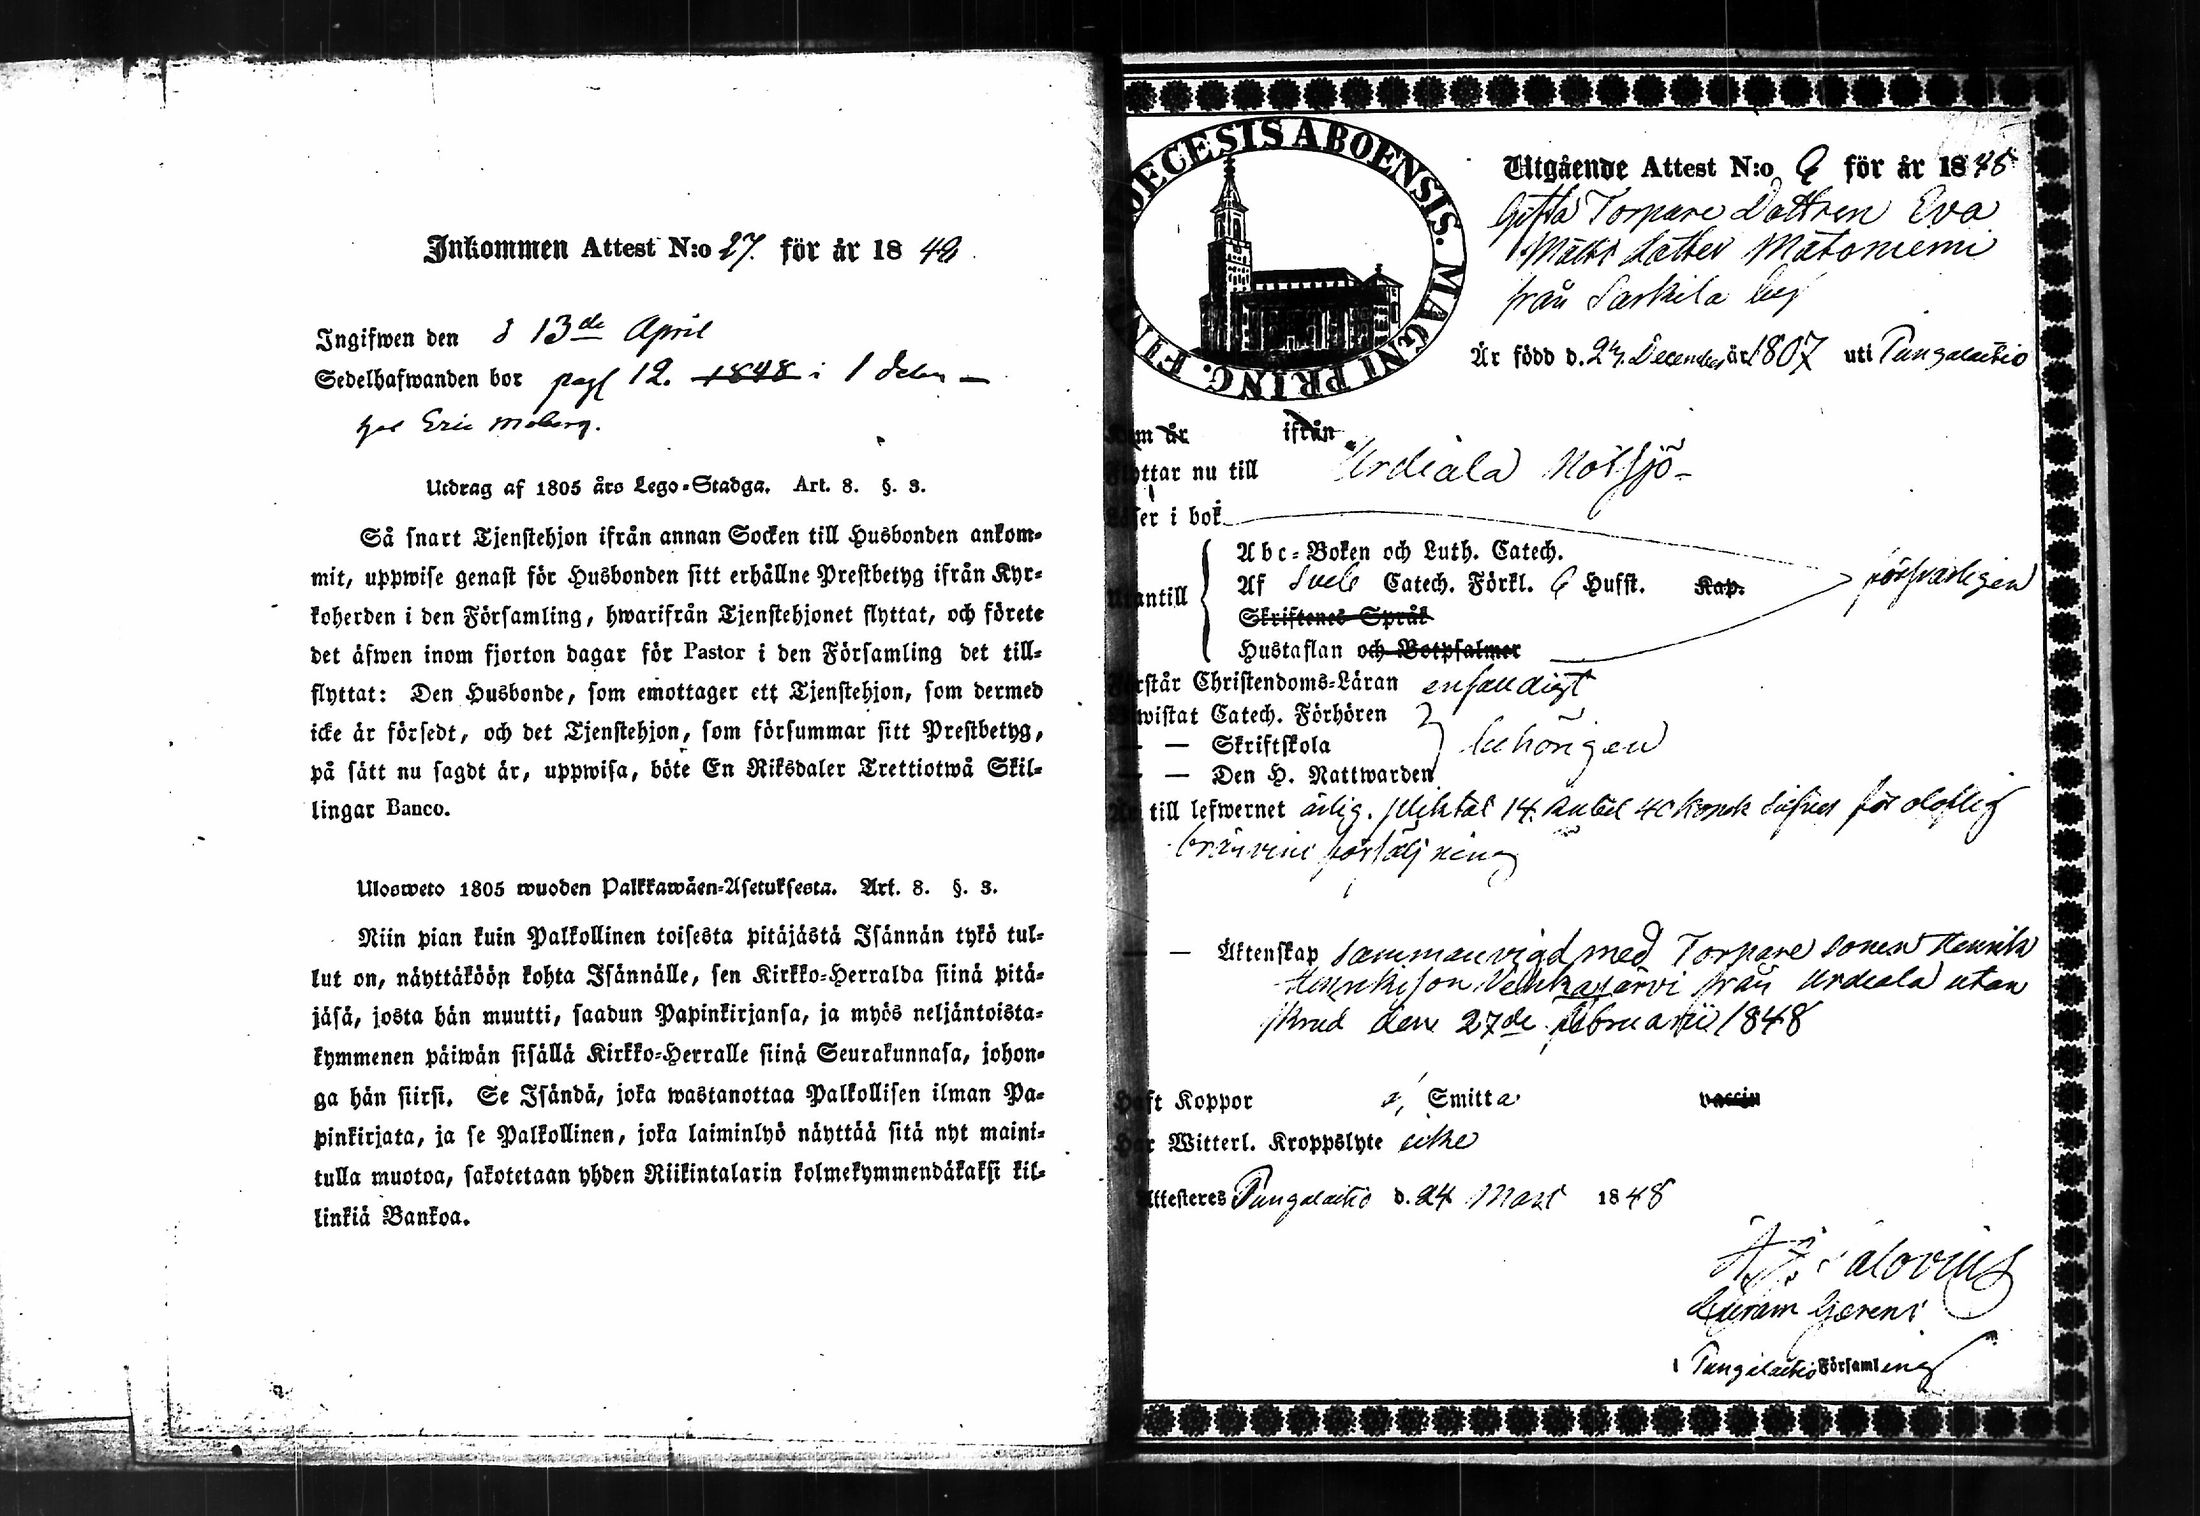 Inkommen Attest N:o 27. för år 1848
Ingifwen den d 13de April
Sedelhafwanden bor pag 12. 1848 i 1 delen
hos Eric Moberg.
Utdrag af 1805 års Lego-Stadga. Art. 8. §. 3.
Så snart Tjenstehjon ifrån annan Socken till Husbonden ankom-
mit, uppwise genast för Husbonden sitt erhållne Prestbetyg ifrån Kyr-
koherden i den Församling, hwarifrån Tjenstehjonet flyttat, och förete
det äfwen inom fjorton dagar för Pastor i den Församling det till-
flyttat: Den Husbonde, som emottager ett Tjenstehjon, som dermed
icke är försedt, och det Tjenstehjon, som försummar sitt Prestbetyg,
på sätt nu sagdt är, uppwisa, böte En Riksdaler Trettiotwå Skil-
lingar Banco.
Ulosweto 1805 wuoden Palkkawäen-Asetuksesta. Art. 8. §. 3.
Niin pian kuin Palkollinen toisesta pitäjästä Isännän tykö tul-
lut on, näyttäköön kohta Isännälle, sen Kirkko-Herralda siinä pitä-
jäsä, josta hän muutti, saadun Papinkirjansa, ja myös neljäntoista-
kymmenen päiwän sisällä Kirkko-Herralle siinä Seurakunnasa, johon-
ga hän siirsi. Se Isändä, joka wastanottaa Palkollisen ilman Pa-
pinkirjata, ja se Palkollinen, joka laiminlyö näyttää sitä nyt maini-
tulla muotoa, sakotetaan yhden Riikintalarin kolmekymmendäkaksi kil-
linkiä Bankoa.
DIOECESIS ABOENSIS. MAGNI PRINC. FIN
Utgående Attest N:o 6 för år 1848
Gifta Torpare Dottren Eva
Matts Dotter Mätoniemi
från Sarkila by
Är född d. 24 December år 1807 uti Pungalaitio
Kom år ifrån
Flyttar nu till Urdiala Notsjö
Läser i bok
Utantill
Abc-Boken och Luth. Catech.
Af Sveb Catech. Förkl. 6 Hufst. Kap.
Skriftenes Språk
Hustaflan och Botpsalmer
försvarligen
Förstår Christendoms-Läran enfaldigt
Bewistat Catech. Förhören
— — Skriftskola behörigen
— — Den H. Nattwarden
Är till lefwernet ärlig. pliktat 14 Rubel 40 Kopek Silfver för oloflig
bränvins försäljning
— — Äktenskap Sammanvigd med Torpare sonen Henrik
Henriksson Vehkajärvi från Urdiala utan
skrud den 27de februarii 1848
Haft Koppor Smitta vaccin
Har Witterl. Kroppslyte icke
Attesteres Pungalaitio d. 24 Mart 1848
Curam Gerens
i Pungalaitio Församling